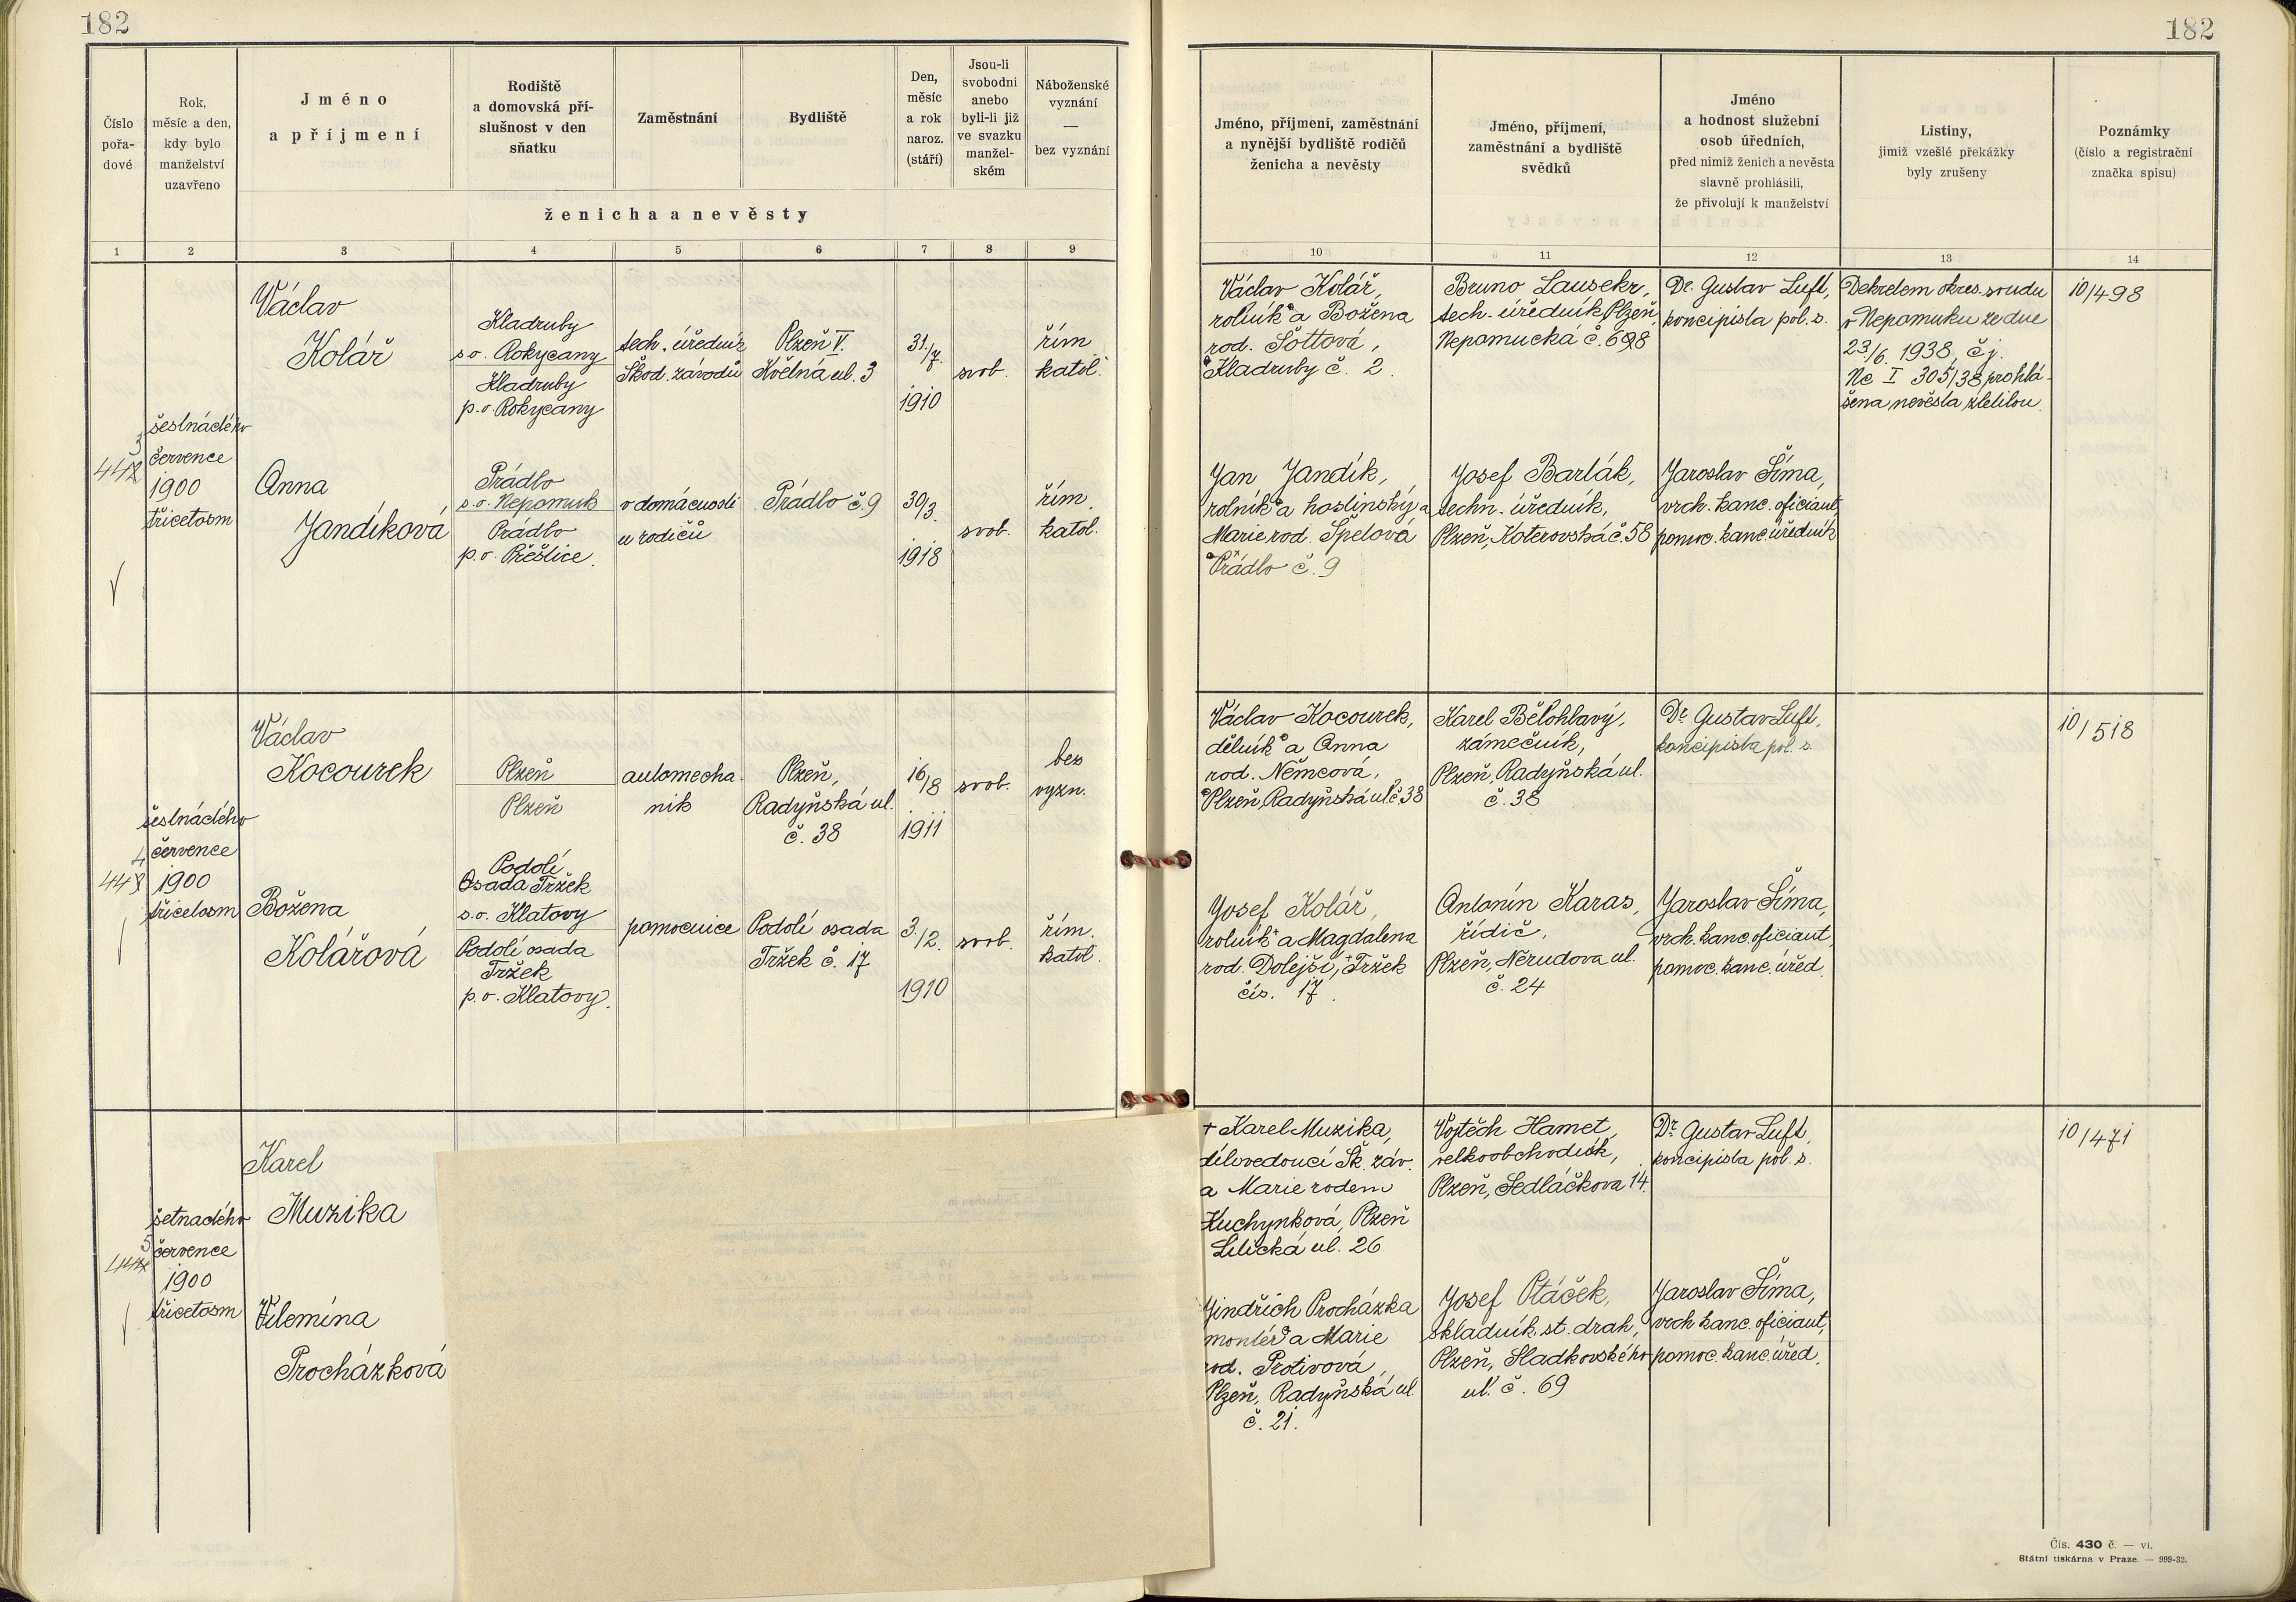 182
182
Číslo
pořa-
dové
Rok,
měsíc a den,
kdy bylo
manželství
uzavřeno
Jméno
a příjmení
Rodiště
a domovská pří-
slušnost v den
sňatku
Zaměstnání
Bydliště
Den,
měsíc
a rok
naroz.
(stáří)
Jsou-li
svobodni
anebo
byli-li již
ve svazku
manžel-
ském
Náboženské
vyznání
—
bez vyznání
ženicha a nevěsty
Jméno, příjmení, zaměstnání
a nynější bydliště rodičů
ženicha a nevěsty
Jméno, příjmení,
zaměstnání a bydliště
svědků
Jméno
a hodnost služební
osob úředních,
před nimiž ženich a nevěsta
slavně prohlásili,
že přivolují k manželství
Listiny,
jimiž vzešlé překážky
byly zrušeny
Poznámky
(číslo a registrační
značka spisu)
1 2 3 4 5 6 7 8 9 10 11 12 13 14
šestnáctého
července
1900
třicetosm
Václav
Kolář
Kladruby
s.o. Rokycany
Kladruby
p.o. Rokycany
tech. úředník
Škod. závodů
Plzeň V.
Květná ul. 3
31./7.
1910
svob.
řím.
katol.
Václav Kolář,
rolník a Božena
rod. Šottová,
Kladruby č. 2.
Bruno Lausekr,
tech. úředník Plzeň,
Nepomucká č. 698
Dr. Gustav Luft,
koncipista pol. s.
Dekretem okres. soudu
v Nepomuku ze dne
23./6. 1938, č.j.
Nc I 305/38 prohlá-
šena nevěsta zletilou.
10/498
Anna
Jandíková
Prádlo
s.o. Nepomuk
Prádlo
p.o. Přeštice.
v domácnosti
u rodičů
Prádlo č. 9
30/3.
1918
svob.
řím.
katol.
Jan Jandík,
rolník a hostinský a
Marie rod. Špelová
Prádlo č. 9
Josef Barták,
techn. úředník,
Plzeň, Koterovská č. 58
Jaroslav Šíma,
vrch. kanc. oficiant,
pomoc. kanc. úředník
šestnáctého
července
1900
třicetosm
Václav
Kocourek
Plzeň
Plzeň
automecha-
nik
Plzeň,
Radyňská ul.
č. 38
16/8
1911
svob.
bez
vyzn.
Václav Kocourek,
dělník a Anna
rod. Němcová,
Plzeň, Radyňská ul. č. 38
Karel Bělohlavý,
zámečník,
Plzeň, Radyňská ul.
č. 38
Dr. Gustav Luft,
koncipista pol. s.
10/518
Božena
Kolářová
Podolí
Osada Tržek
s.o. Klatovy
Podolí osada
Tržek
p.o. Klatovy.
pomocnice
Podolí osada
Tržek č. 17
3./2.
1910
svob.
řím.
katol.
Josef Kolář,
rolník a Magdalena
rod. Dolejší, Tržek
čís. 17.
Antonín Karas,
řidič,
Plzeň, Nerudova ul.
č. 24
Jaroslav Šíma,
vrch. kanc. oficiant,
pomoc. kanc. úřed.
šetnáctého
července
1900
třicetosm
Karel
Muzika
+ Karel Muzika,
dílovedoucí Šk. záv.
a Marie rodem
Kuchynková, Plzeň
Lilická ul. 26
Vojtěch Hamet,
velkoobchodník,
Plzeň, Sedláčkova 14.
Dr. Gustav Luft,
koncipista pol. s.
10/471
Vilemína
Procházková
Jindřich Procházka
montér a Marie
rod. Protivová,
Plzeň, Radyňská ul.
č. 21.
Josef Ptáček,
skladník st. drah,
Plzeň, Sladkovského
ul. č. 69
Jaroslav Šíma,
vrch. kanc. oficiant,
pomoc. kanc. úřed.
Čís. 430 č. — vi.
Státní tiskárna v Praze. — 999-32.